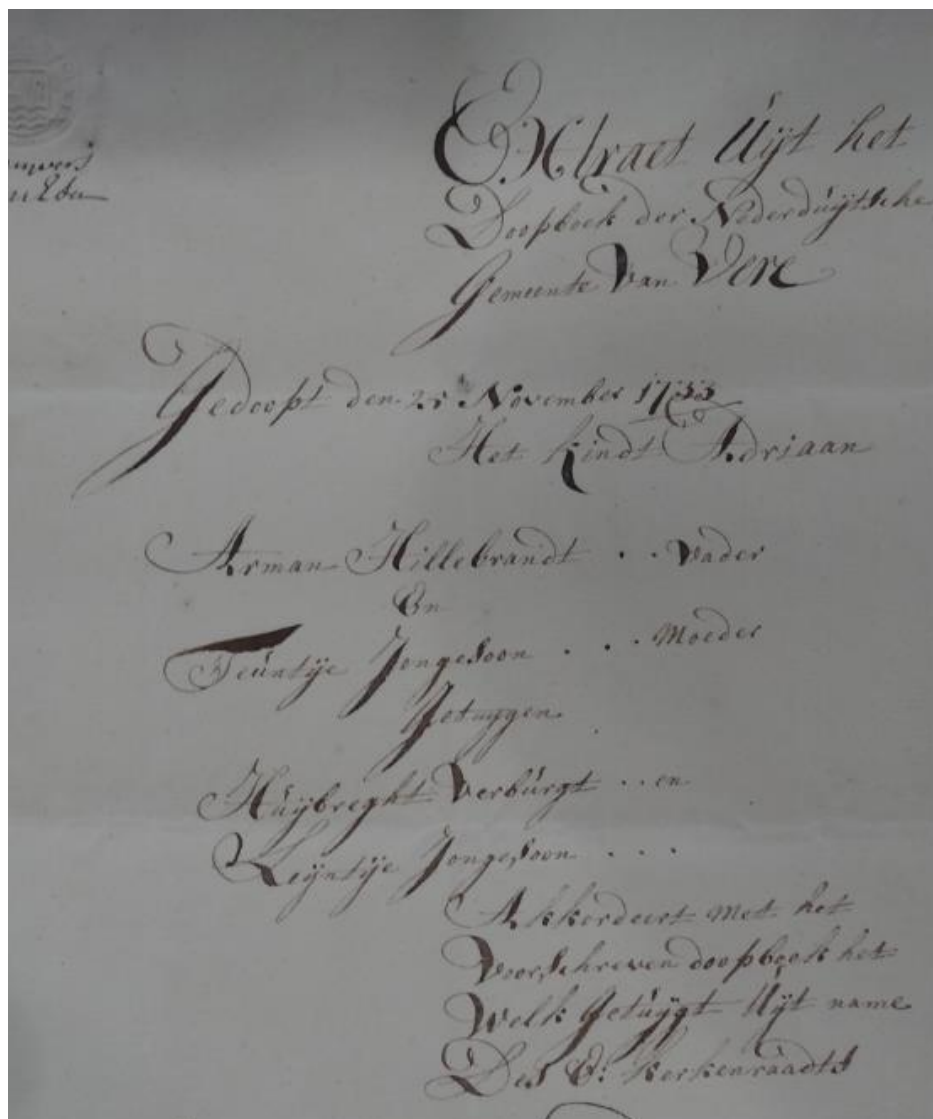 Extract Uÿt het
Doopboek der Nederduÿtsche
Gemeente Van Vere
Gedoopt den 25 November 1733
Het kindt Adriaan
Arman Hillebrandt . . Vader
En
Teúntÿe Jongesoon . . . Moeder
Getuÿgen
Húÿbreght Verbúrgt . . en
Leÿntÿe Jongesoon . . .
Akkordeert met het
Voorschreven doopboek het
Welk Getúÿgt Uÿt name
Des E: Kerkenraadts